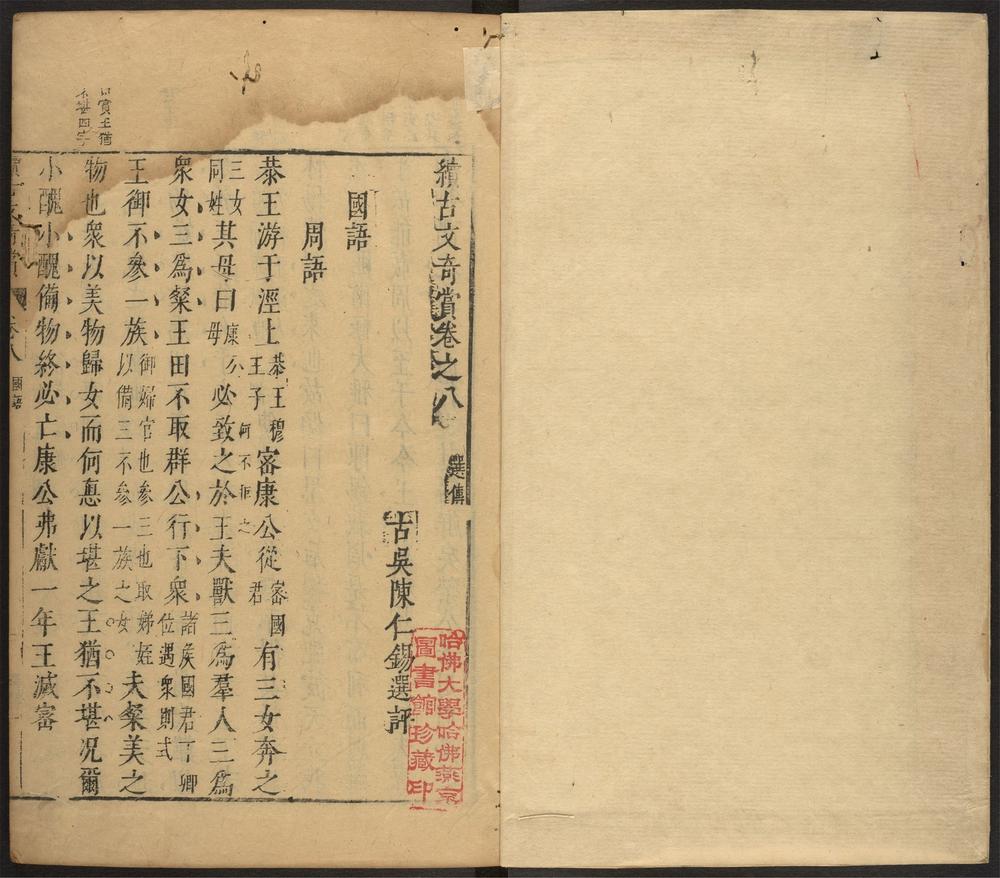 續古文奇賞卷之八 選傳
古吳陳仁錫選評
國語
周語
恭王游于涇上恭王穆王子密康公從密國君有三女奔之
三女同姓其母曰康公母必致之於王何不拒之夫獸三爲羣人三爲
衆女三爲粲王田不取群公行下衆諸侯國君下卿位遇衆則式
王御不參一族御婦官也參三也取娣姪以備三不參一族之女夫粲美之
物也衆以美物歸女而何悳以堪之王猶不堪况爾
小醜小醜備物終必亡康公弗獻一年王滅密
賞王猶
堪四字
卷八 國語
哈佛大學哈佛燕京
圖書館珍藏印